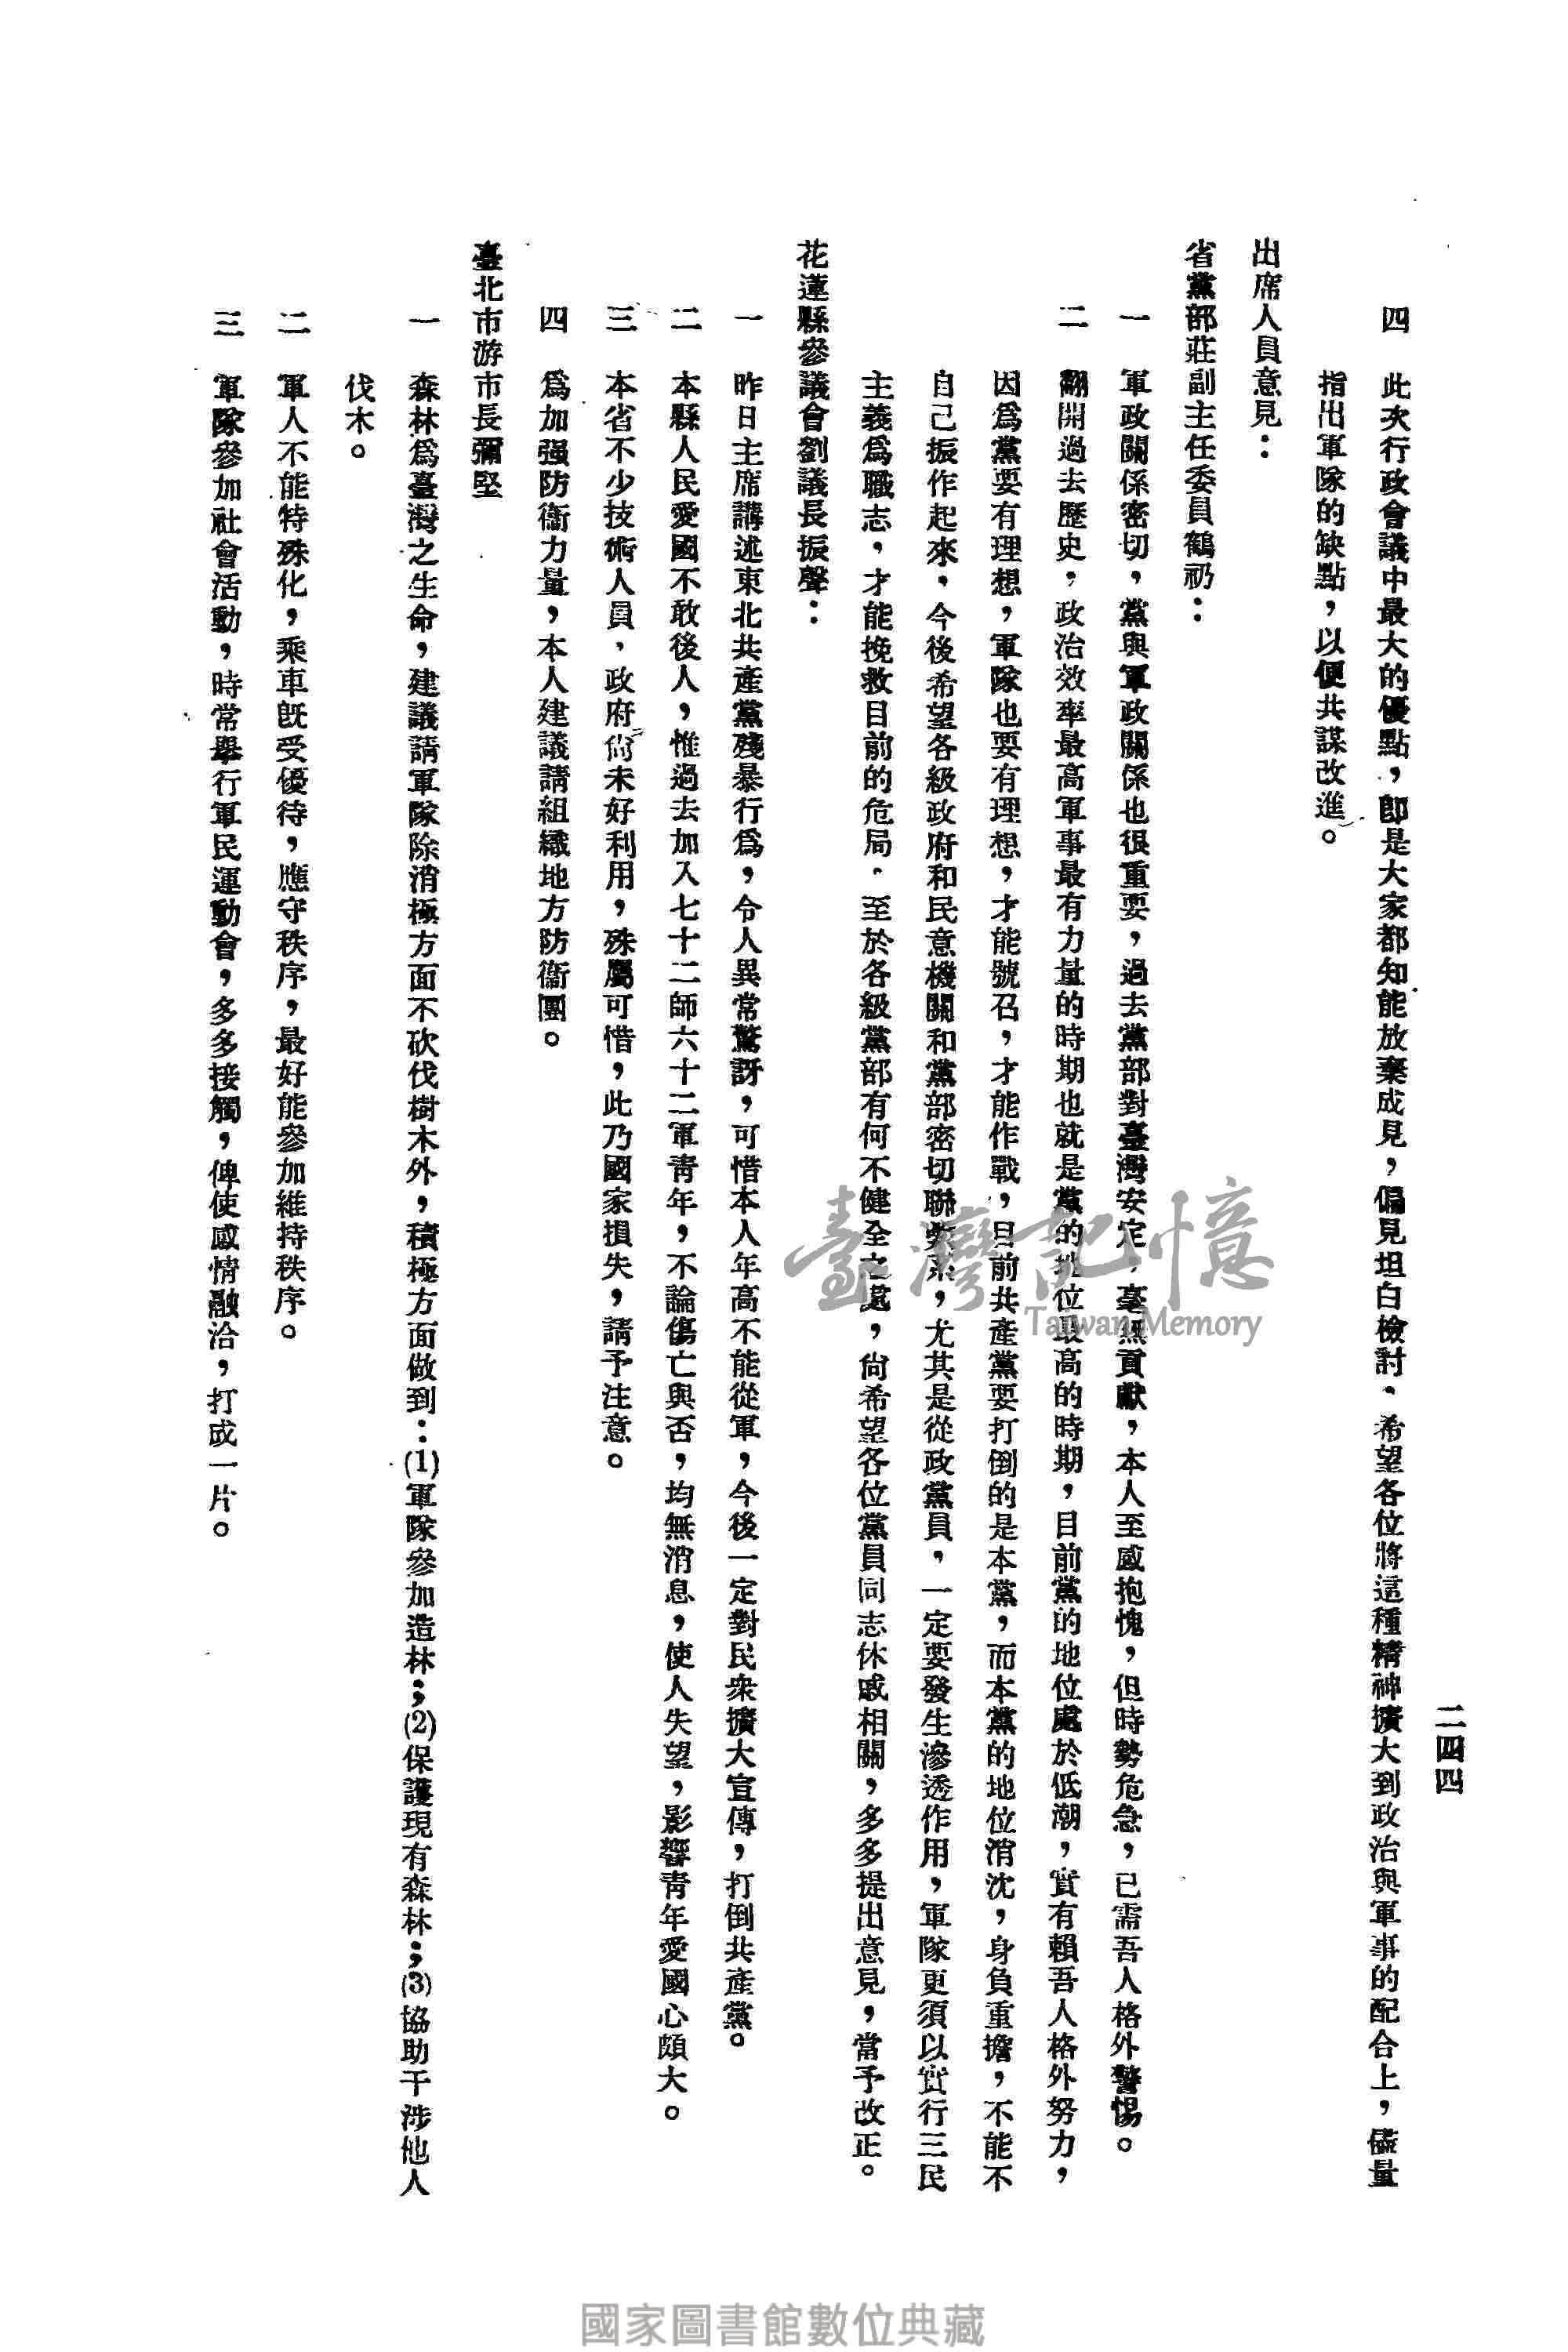 二四四
四　此次行政會議中最大的優點，卽是大家都知能放棄成見，偏見坦白檢討，希望各位將這種精神擴大到政治與軍事的配合上，儘量
指出軍隊的缺點，以便共謀改進。
出席人員意見：
省黨部莊副主任委員鶴礽：
一　軍政關係密切，黨與軍政關係也很重要，過去黨部對臺灣安定，毫無貢獻，本人至感抱愧，但時勢危急，已需吾人格外警惕。
二　翻開過去歷史，政治效率最高軍事最有力量的時期也就是黨的地位最高的時期，目前黨的地位處於低潮，實有賴吾人格外努力，
因爲黨要有理想，軍隊也要有理想，才能號召，才能作戰，目前共產黨要打倒的是本黨，而本黨的地位消沈，身負重擔，不能不
自己振作起來，今後希望各級政府和民意機關和黨部密切聯繫，尤其是從政黨員，一定要發生滲透作用，軍隊更須以實行三民
主義爲職志，才能挽救目前的危局，至於各級黨部有何不健全之處，尙希望各位黨員同志休戚相關，多多提出意見，當予改正。
花蓮縣參議會劉議長振聲：
一　昨日主席講述東北共產黨殘暴行爲，令人異常驚訝，可惜本人年高不能從軍，今後一定對民衆擴大宣傳，打倒共產黨。
二　本縣人民愛國不敢後人，惟過去加入七十二師六十二軍青年，不論傷亡與否，均無消息，使人失望，影響青年愛國心頗大。
三　本省不少技術人員，政府尙未好利用，殊屬可惜，此乃國家損失，請予注意。
四　爲加强防衞力量，本人建議請組織地方防衞團。
臺北市游市長彌堅
一　森林爲臺灣之生命，建議請軍隊除消極方面不砍伐樹木外，積極方面做到：(1)軍隊參加造林；(2)保護現有森林；(3)協助干涉他人
伐木。
二　軍人不能特殊化，乘車旣受優待，應守秩序，最好能參加維持秩序。
三　軍隊參加社會活動，時常舉行軍民運動會，多多接觸，俾使感情融洽，打成一片。
臺灣記憶
Taiwan Memory
國家圖書館數位典藏